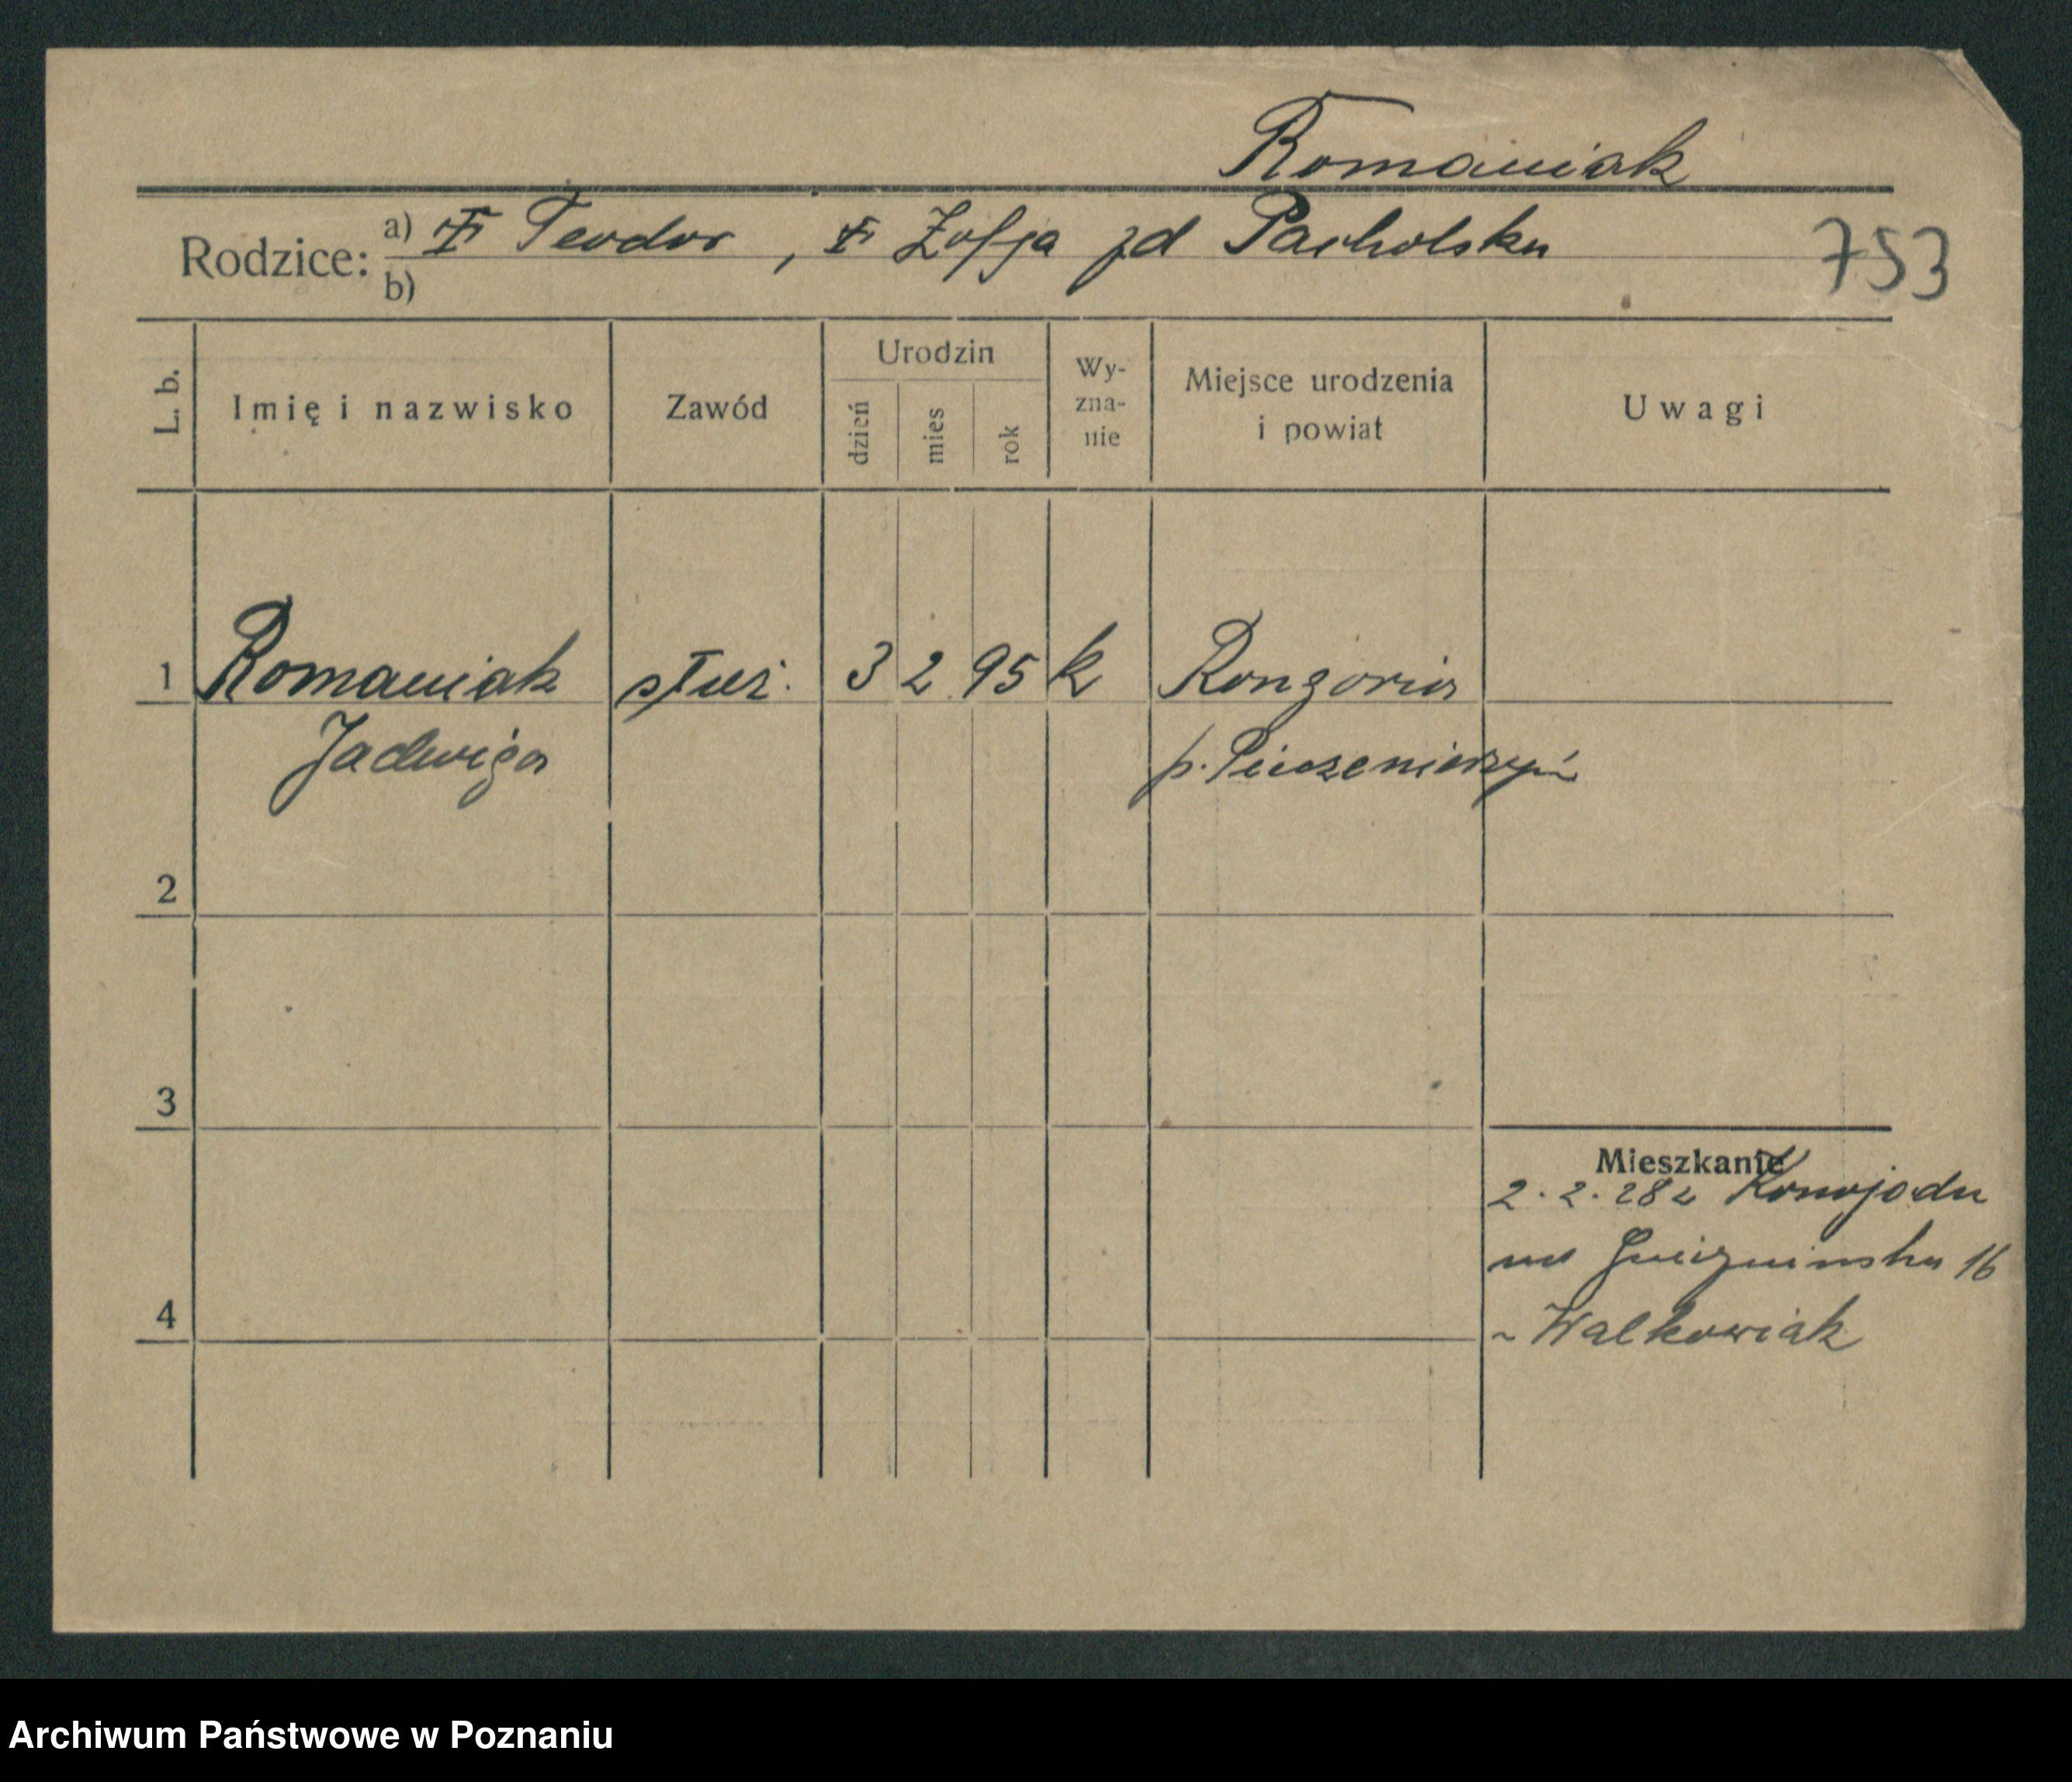 Romaniak
Rodzice: a) Teodor, Zofja zd Pacholska
b)
753
L. b. Imię i nazwisko Zawód Urodzin dzień mies rok Wyznanie Miejsce urodzenia i powiat Uwagi
1 Romaniak służ. 3 2 95 k
Jadwiga
2
3
Mieszkanie
2.2.28 z
16
4 ~ Walkowiak
Archiwum Państwowe w Poznaniu